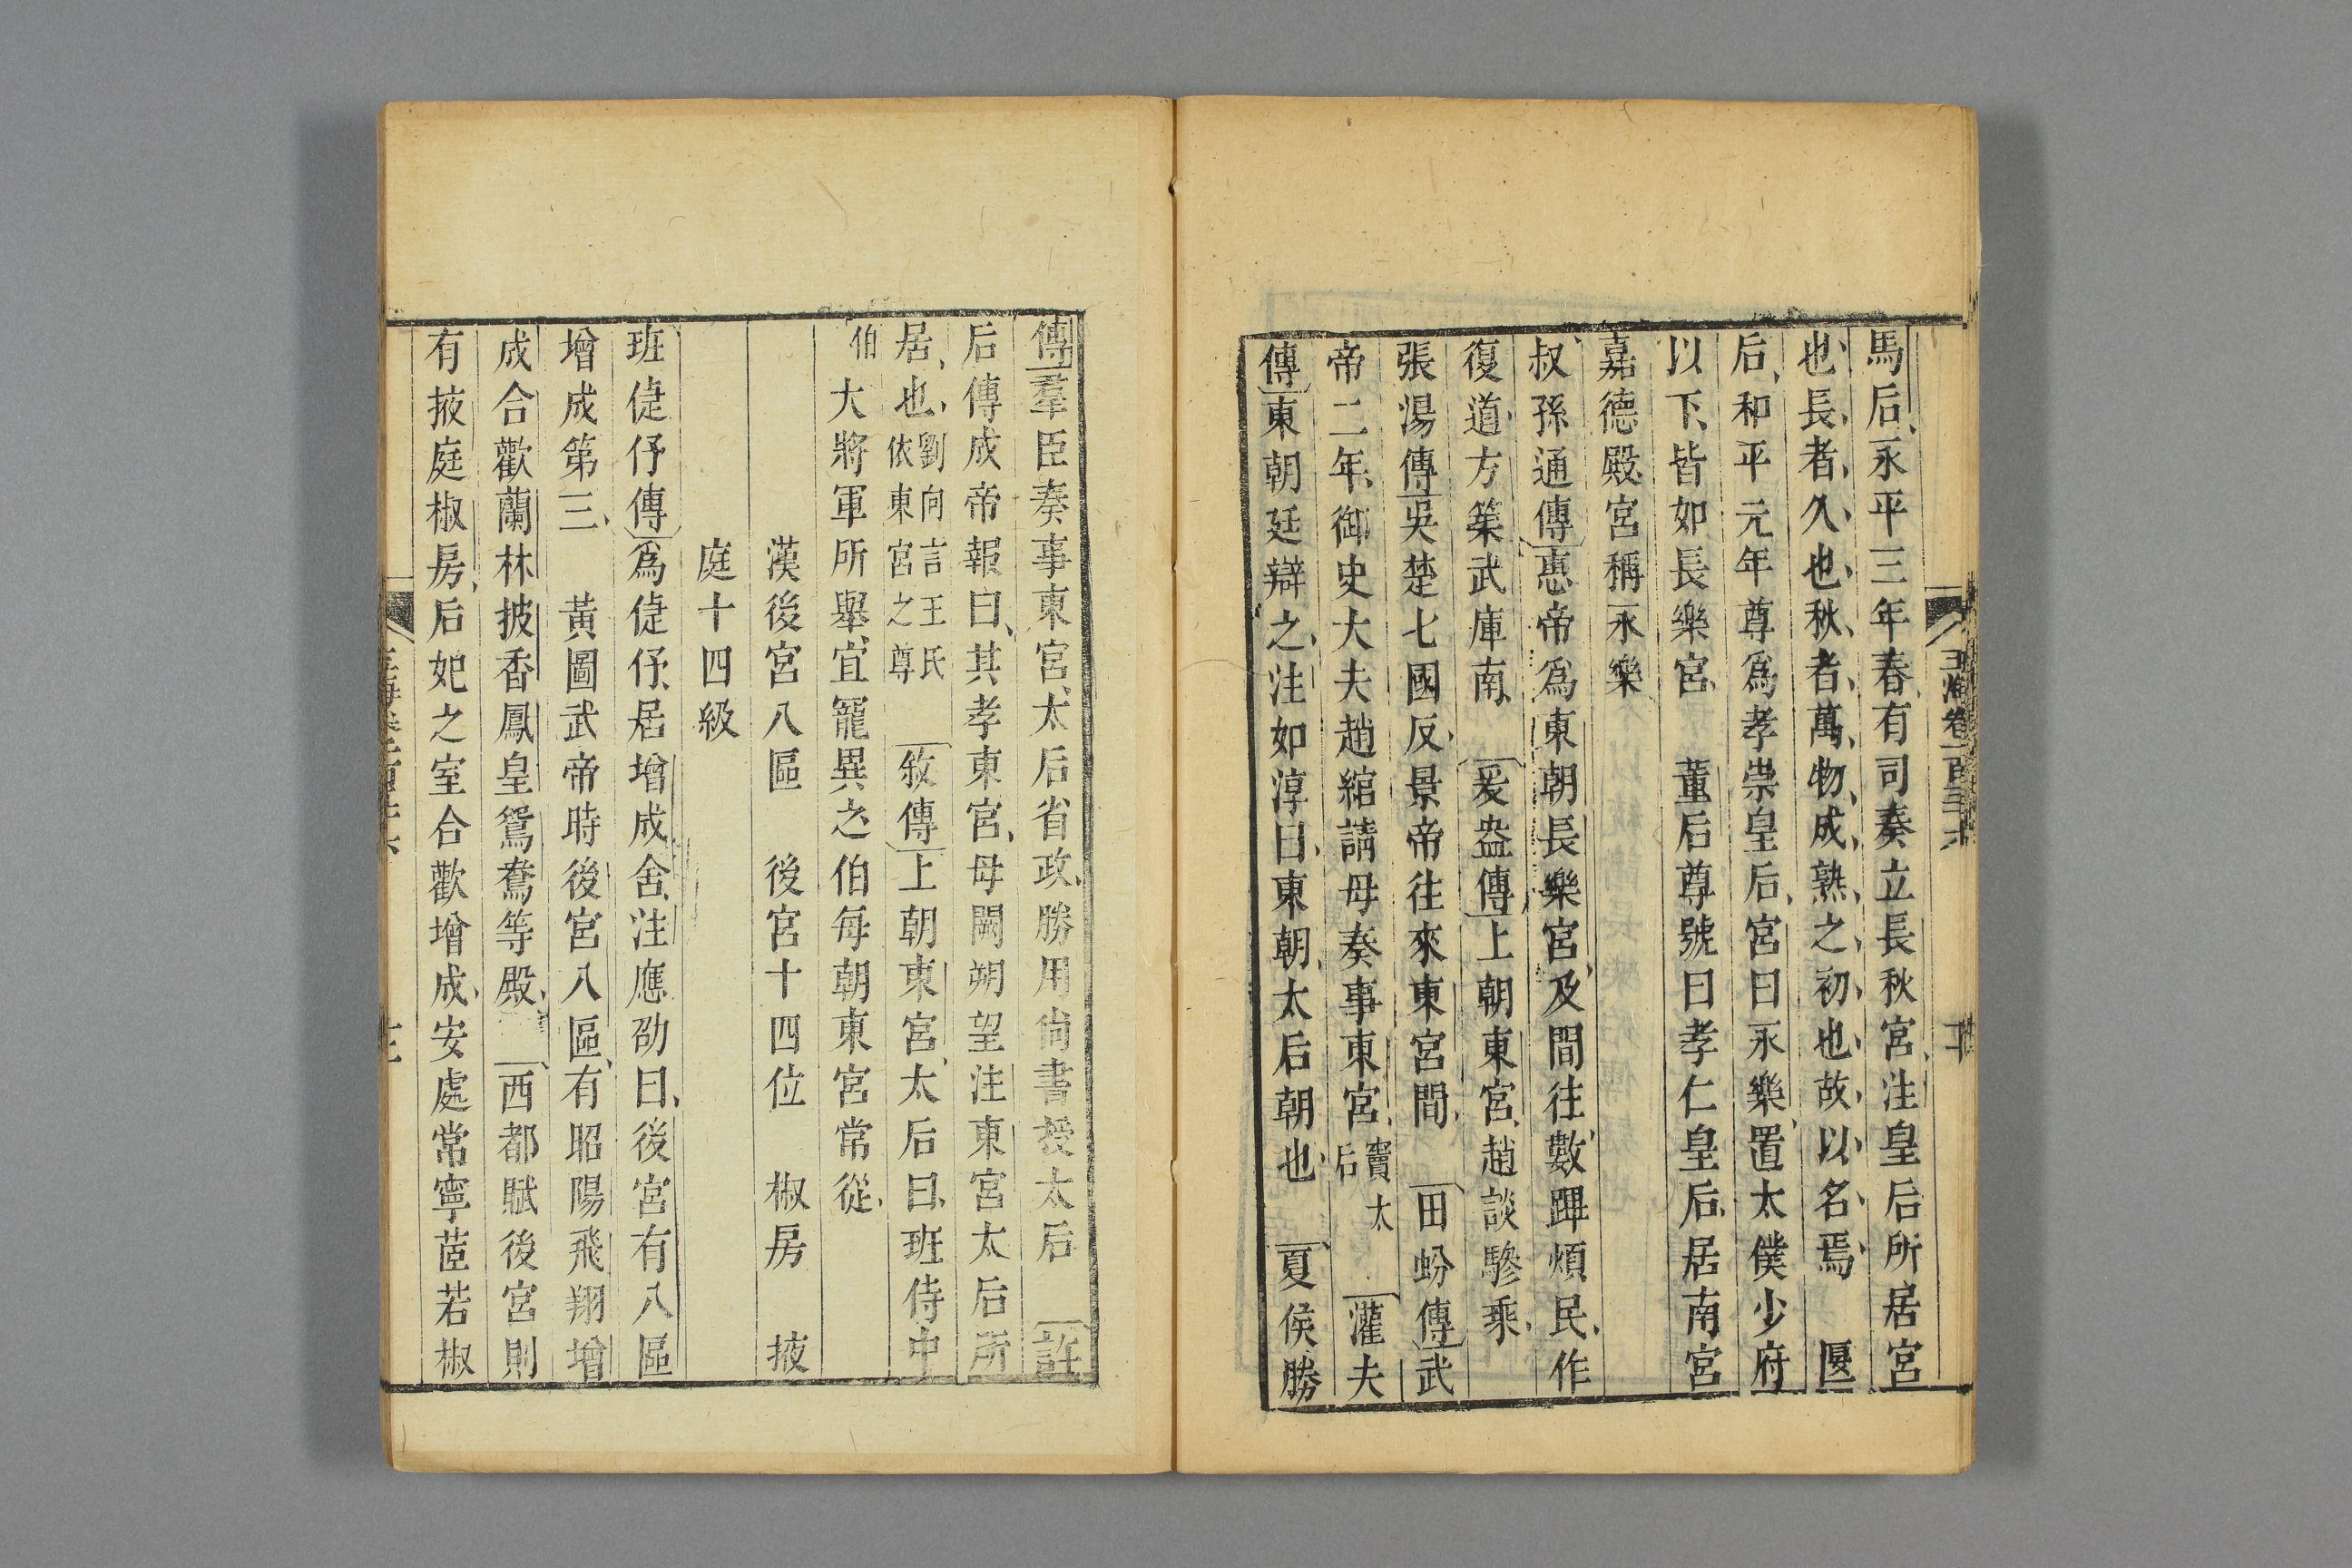 馬后永平三年春有司奏立長秋宮注皇后所居宮
也長者久也秋者萬物成熟之初也故以名焉　匽
后和平元年尊爲孝崇皇后宮曰永樂置太僕少府
以下皆如長樂宮　董后尊號曰孝仁皇后居南宮
嘉德殿宮稱永樂
叔孫通傳惠帝爲東朝長樂宮及間往數蹕煩民作
復道方築武庫南　爰盎傳上朝東宮趙談驂乘
張湯傳吳楚七國反景帝往來東宮間　田蚡傳武
帝二年御史大夫趙綰請毋奏事東宮竇太后　灌夫
傳東朝廷辯之注如淳曰東朝太后朝也　夏侯勝
玉海卷一百三十六
傳羣臣奏事東宮太后省政勝用尙書授太后　許
后傳成帝報曰其孝東宮毋闕朔望注東宮太后所
居也劉向言王氏依東宮之尊　敘傳上朝東宮太后曰班侍中
伯大將軍所舉宜寵異之伯每朝東宮常從
漢後宮八區　後宮十四位　椒房　掖
庭十四級
班倢伃傳爲倢伃居增成舍注應劭曰後宮有八區
增成第三　黃圖武帝時後宮八區有昭陽飛翔增
成合歡蘭林披香鳳皇鴛鴦等殿　西都賦後宮則
有掖庭椒房后妃之室合歡增成安處常寧茝若椒